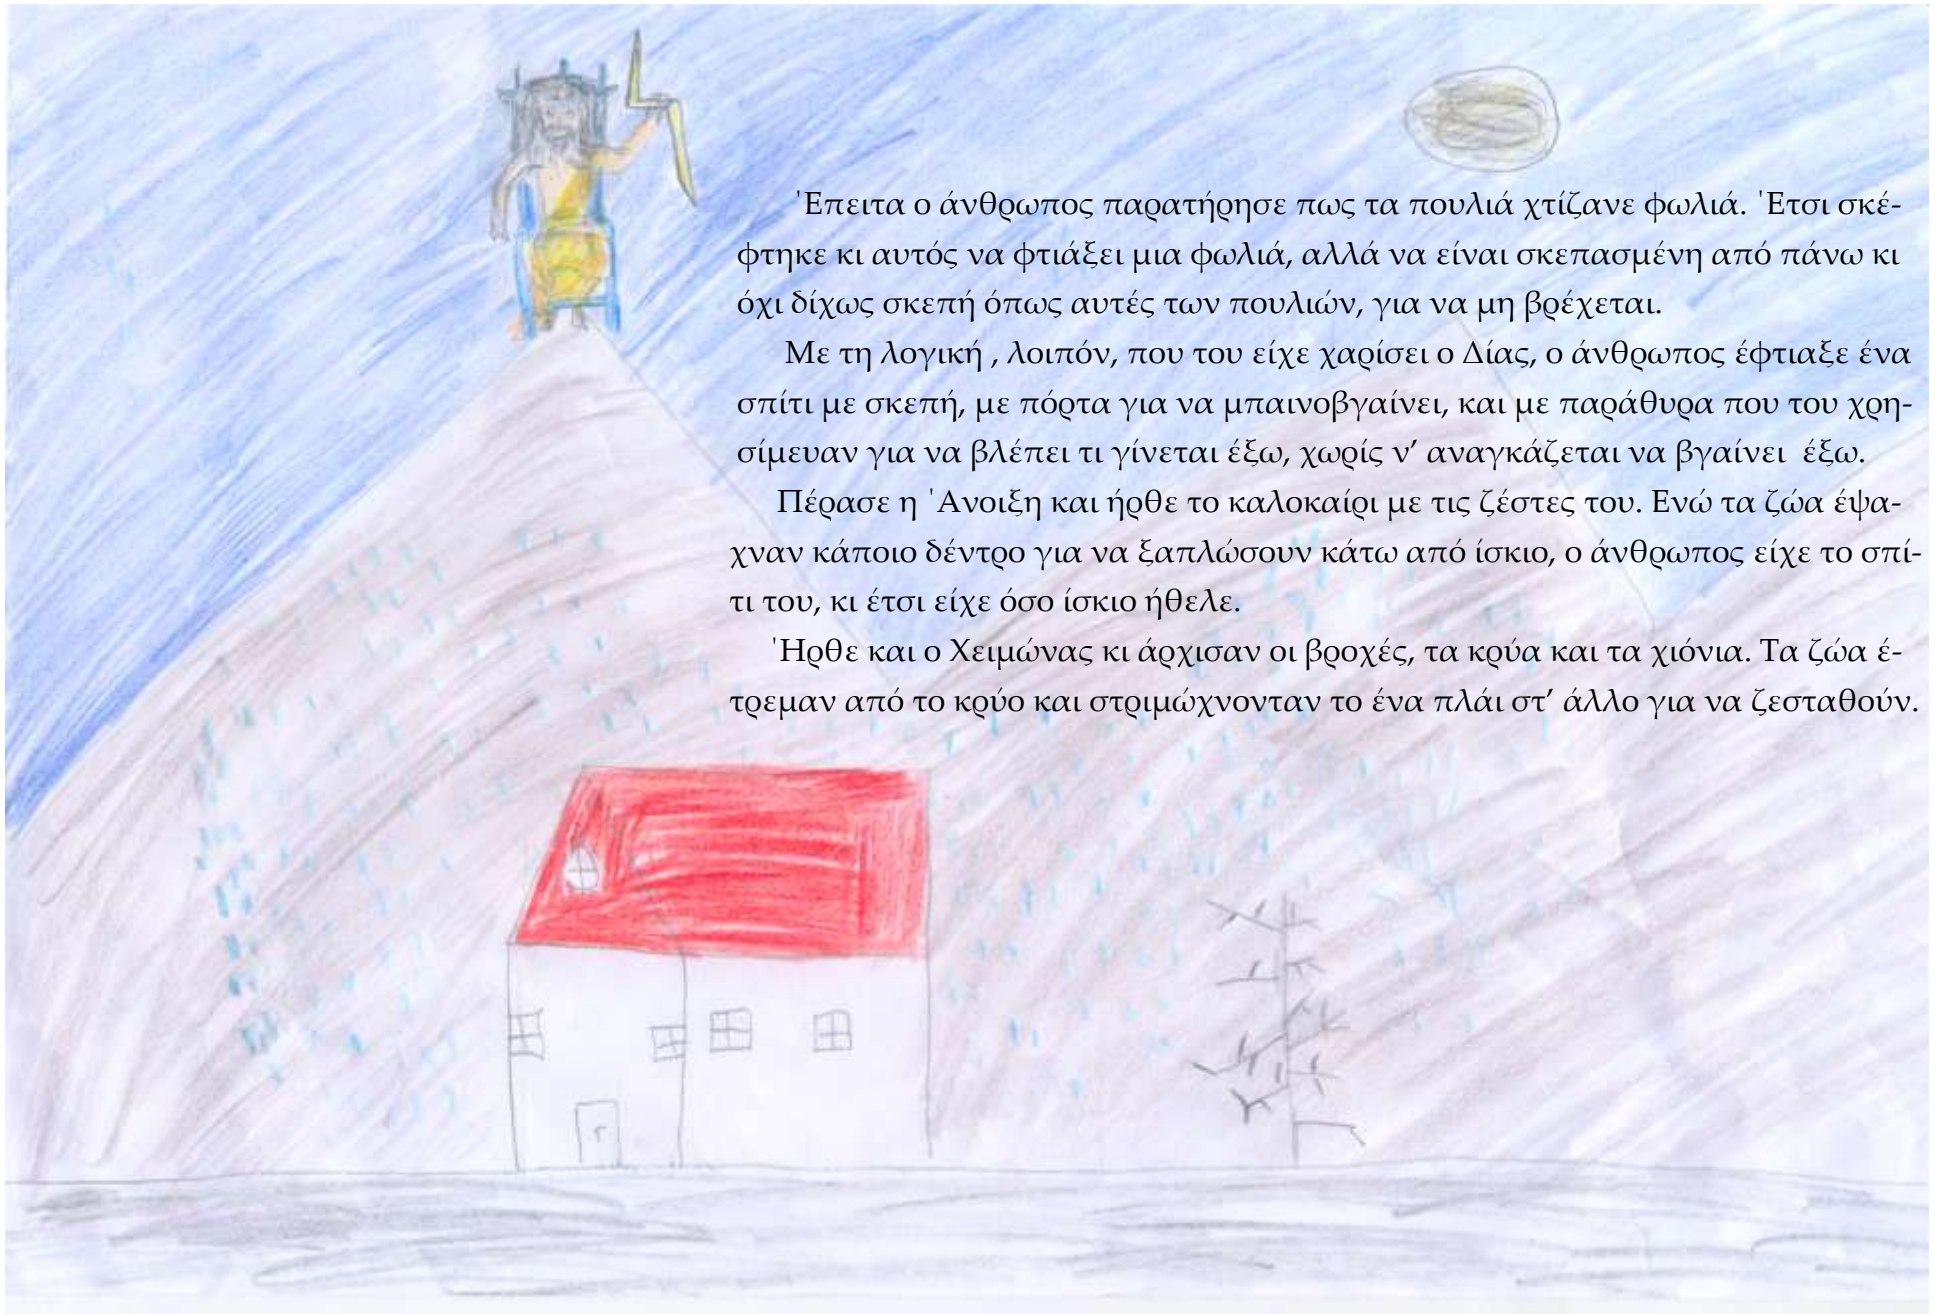 ΄Επειτα ο άνθρωπος παρατήρησε πως τα πουλιά χτίζανε φωλιά. ΄Ετσι σκέ-
φτηκε κι αυτός να φτιάξει μια φωλιά, αλλά να είναι σκεπασμένη από πάνω κι
όχι δίχως σκεπή όπως αυτές των πουλιών, για να μη βρέχεται.
Με τη λογική , λοιπόν, που του είχε χαρίσει ο Δίας, ο άνθρωπος έφτιαξε ένα
σπίτι με σκεπή, με πόρτα για να μπαινοβγαίνει, και με παράθυρα που του χρη-
σίμευαν για να βλέπει τι γίνεται έξω, χωρίς ν’ αναγκάζεται να βγαίνει έξω.
Πέρασε η ΄Ανοιξη και ήρθε το καλοκαίρι με τις ζέστες του. Ενώ τα ζώα έψα-
χναν κάποιο δέντρο για να ξαπλώσουν κάτω από ίσκιο, ο άνθρωπος είχε το σπί-
τι του, κι έτσι είχε όσο ίσκιο ήθελε.
΄Ηρθε και ο Χειμώνας κι άρχισαν οι βροχές, τα κρύα και τα χιόνια. Τα ζώα έ-
τρεμαν από το κρύο και στριμώχνονταν το ένα πλάι στ’ άλλο για να ζεσταθούν.